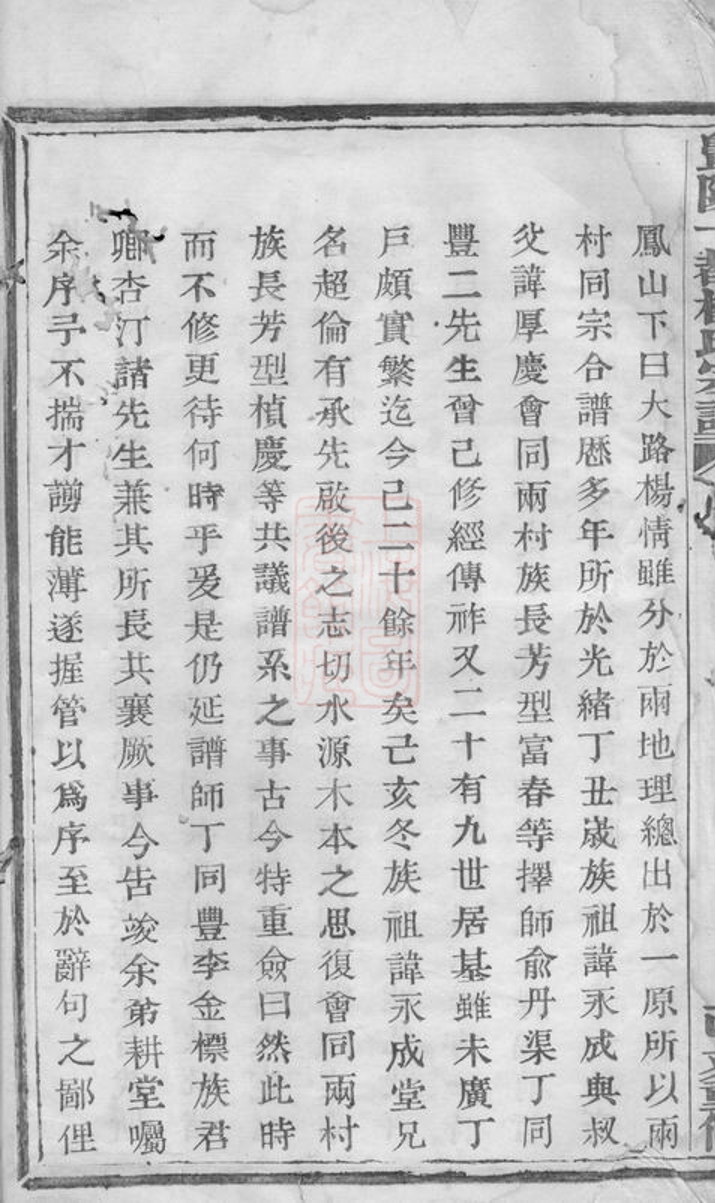 鳳山下曰大路楊情雖分於兩地理總出於一原所以兩
村同宗合譜歷多年所於光緒丁丑歲族祖諱永成與叔
父諱厚慶會同兩村族長芳型富春等擇師俞丹渠丁同
豐二先生曾已修經傳祚又二十有九世居基雖未廣丁
戶頗實繁迄今己二十餘年矣己亥冬族祖諱永成堂兄
名超倫有承先啟後之志切水源木本之思復會同兩村
族長芳型楨慶等共議譜系之事古今特重僉曰然此時
而不修更待何時乎爰是仍延譜師丁同豐李金標族君
卿杏汀諸先生兼其所長共襄厥事今告竣余弟耕堂囑
余序予不揣才譾能薄遂握管以爲序至於辭句之鄙俚